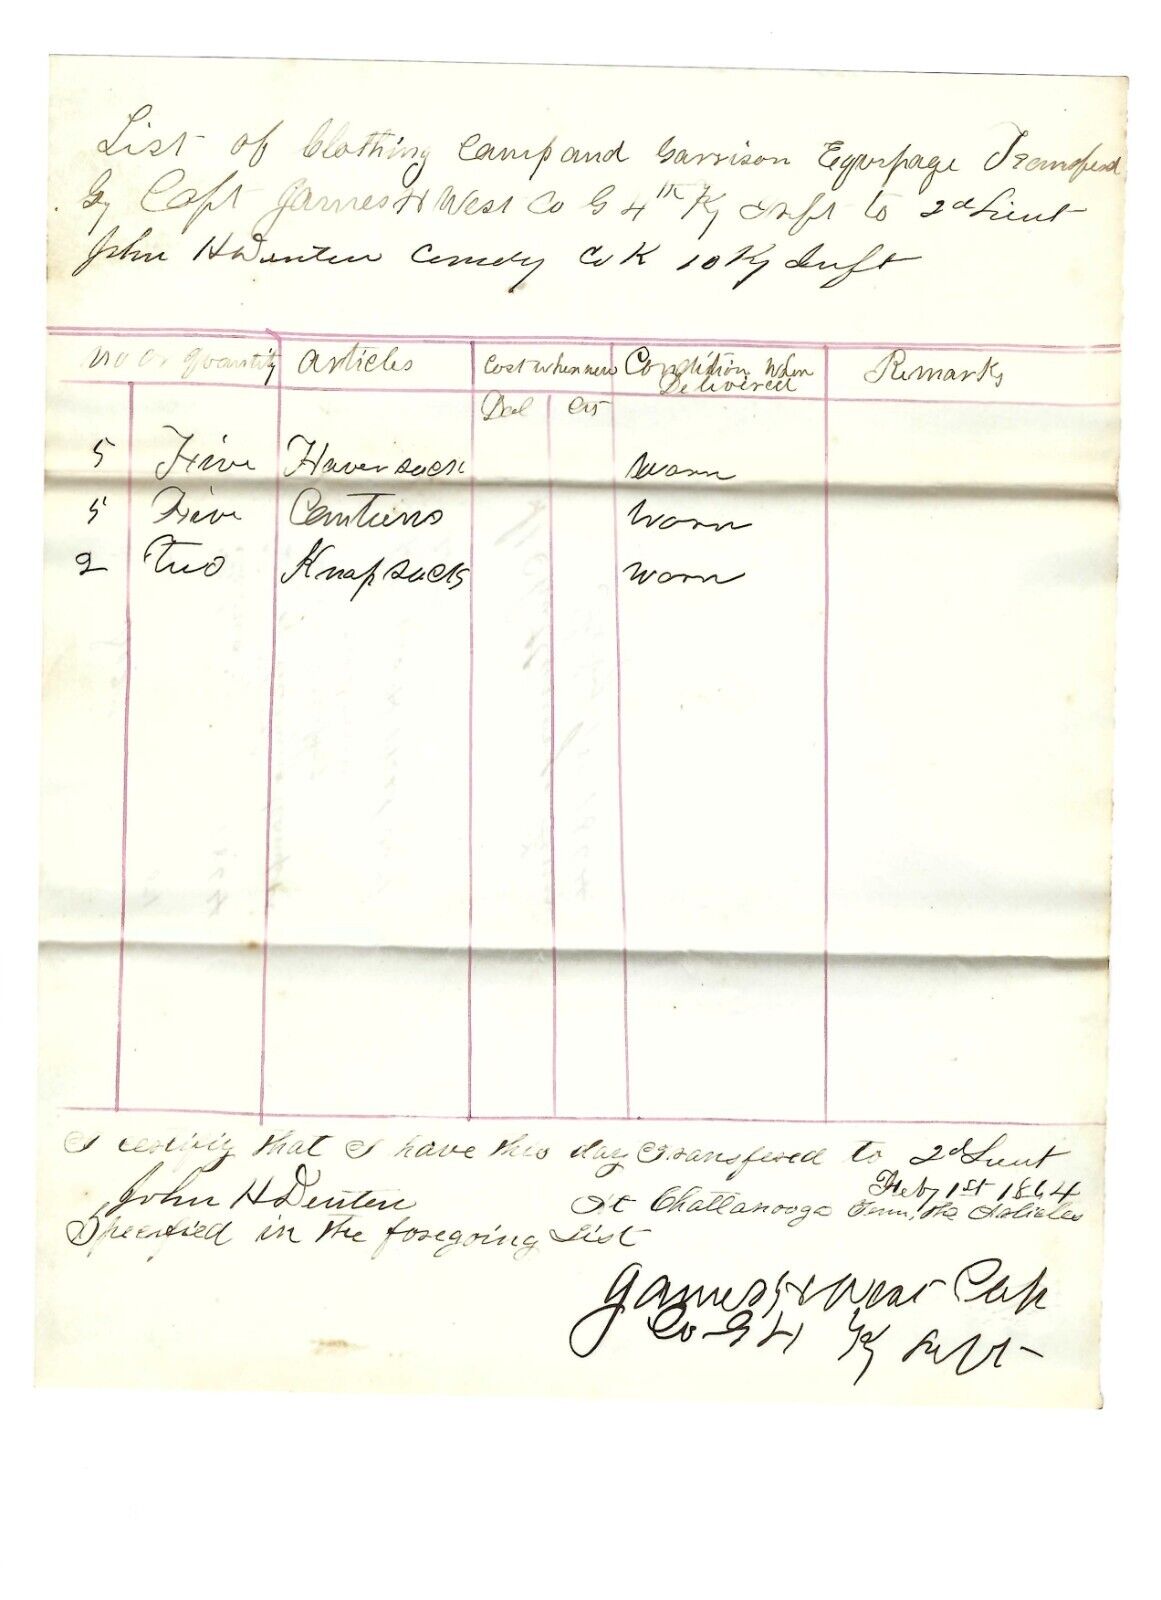 List of Clothing Camp and Garrison Equipage Transfered
By Capt James H West Co G 4th Ky Inft to 2d Lieut
John H Denten Comdg Co K 10 Ky Inft
No or Quantity Articles Cost when new Condition When Delivered Remarks
Dol Cts
5 Five Haversack worn
5 Five Cantiens worn
2 Two Knapsacks worn
I certify that I have this day Transfered to 2d Lieut
John H Denten At Chattanooga Tenn, the Articles
Feby 1st 1864
Specified in the foregoing List
James H West Capt
Co G 4 Ky Inft